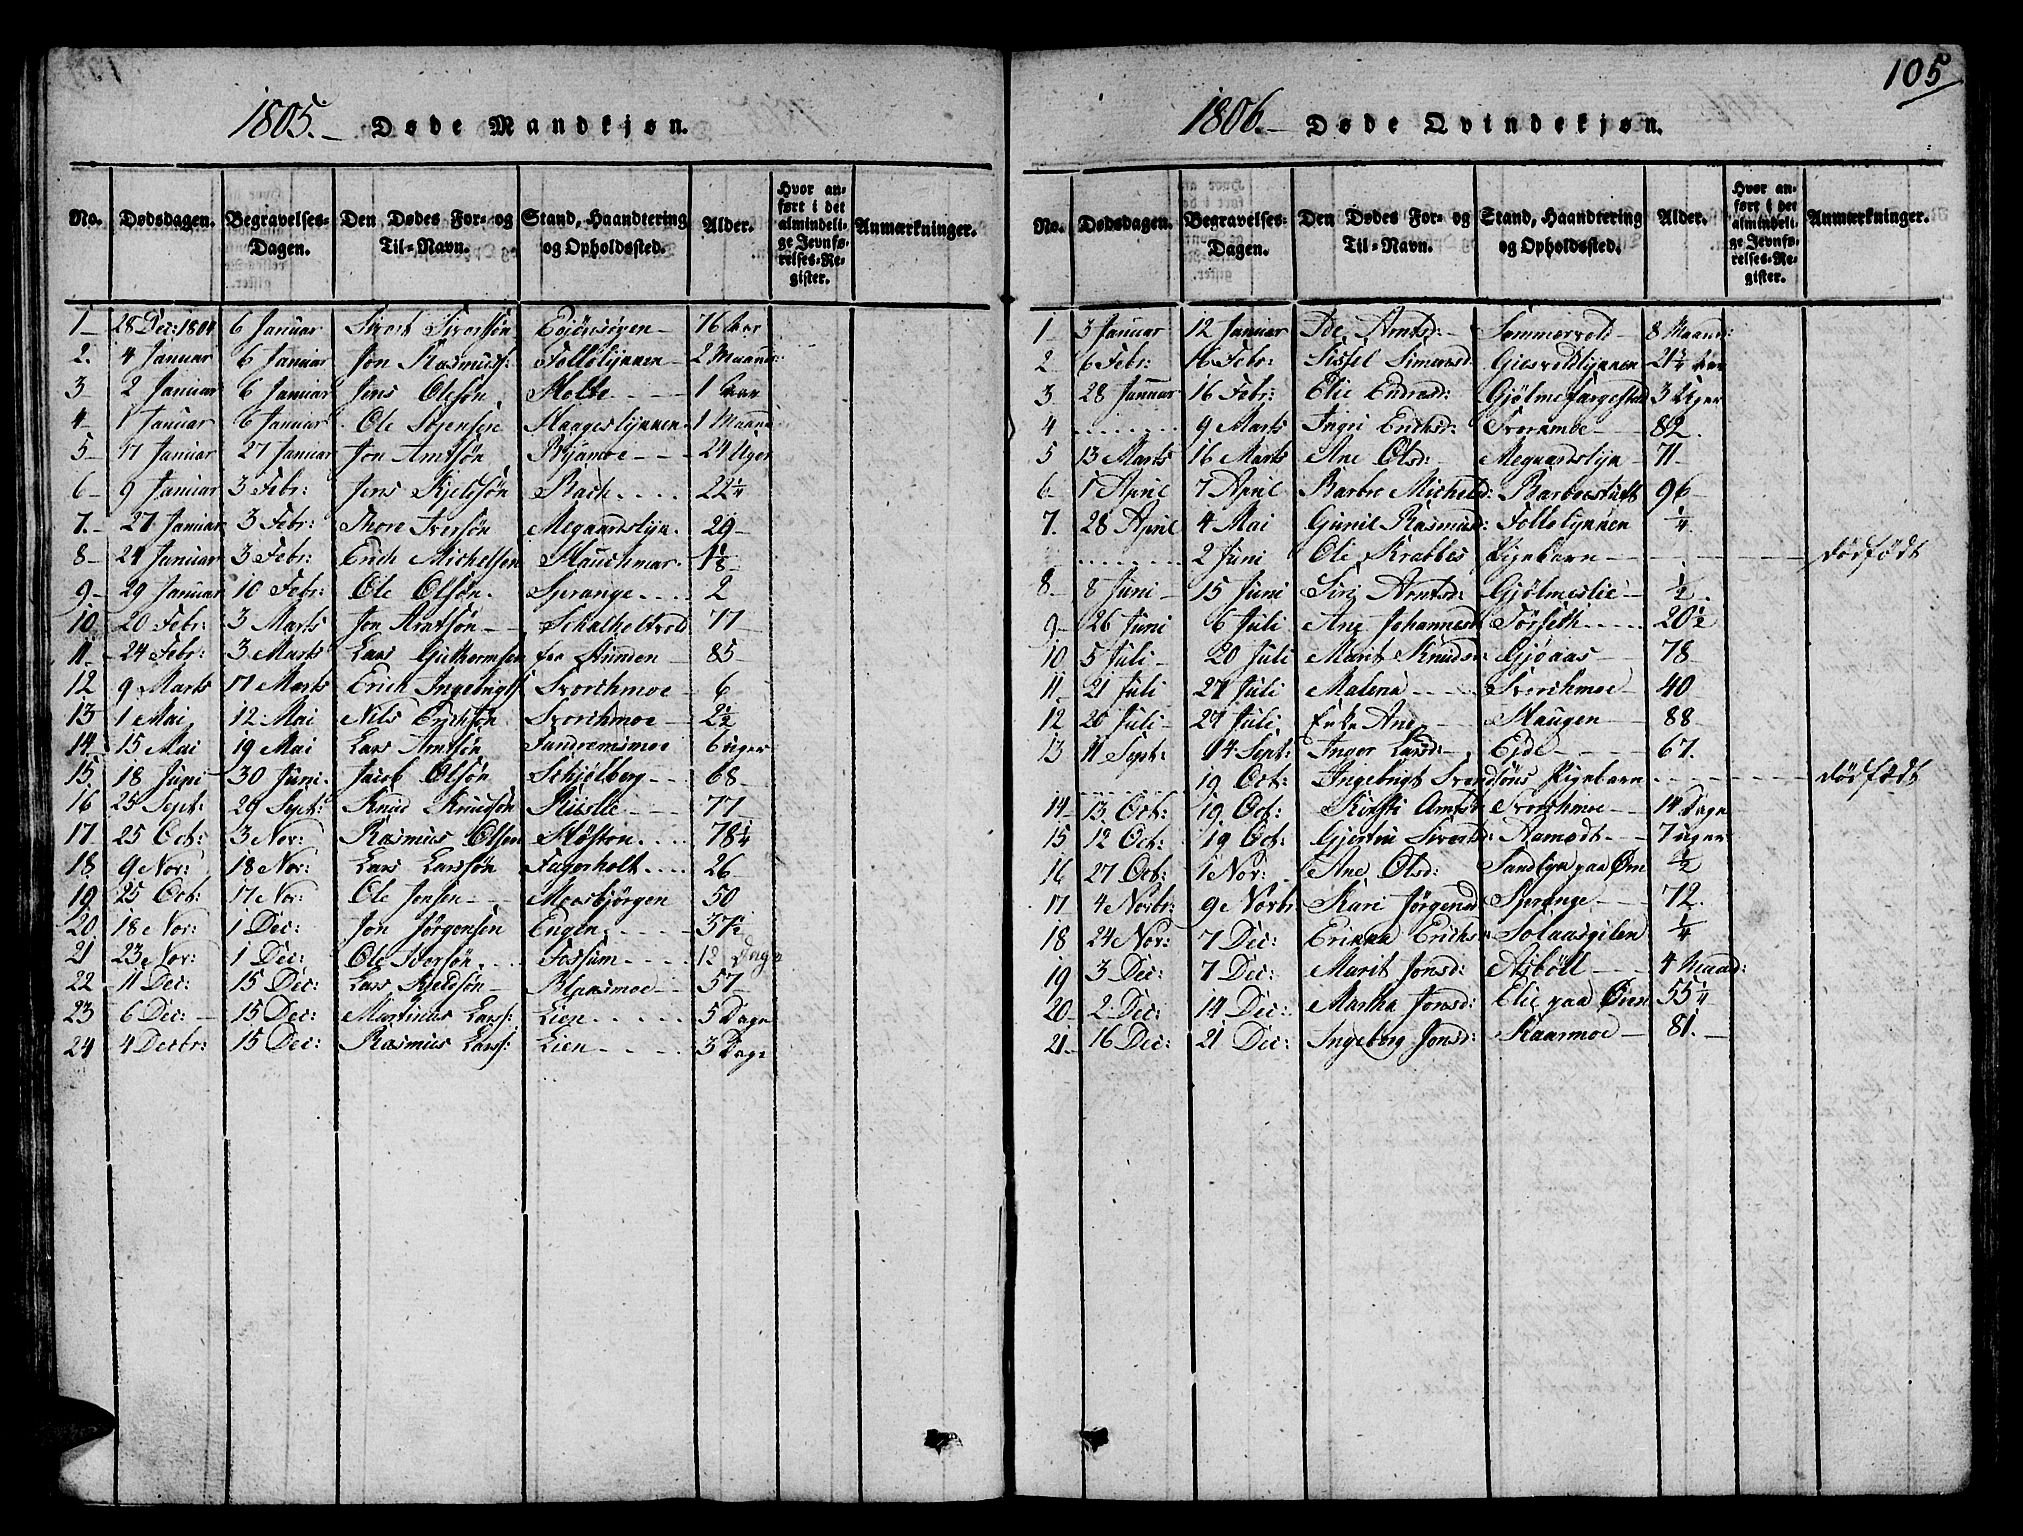 105
1805.- Døde Mandkjøn.
No. Dødsdagen. Begravelses-Dagen. Den Dødes For- og Til-Navn. Stand, Haandtering og Opholdssted. Alder. Hvor anført i det almindelige Jevnførelses-Register. Anmærkninger.
1- 28 Dec: 1804 6 Januar Sivert Sivertsøn 76 Aar
2. 4 Januar 6 Januar Jon Rasmus: Folløiynnen 2 Maaned:
3 2 Januar 6 Januar Jens Olesøn Holte 1 Aar
4- 1 Januar 6 Januar Ole Sørensen 1 Maaned
5- 17 Januar 27 Januar Jon Arntsøn 24 Uger
6- 9 Januar 3 Febr: Jens Kjeldsøn Bach 22 1/4
7.- 27 Januar 3 Febr: Thore Iversøn Megaardslyn. 29-
8- 24 Januar 3 Febr: Erich Michelsen 1 1/8
9- 29 Januar 10 Febr: Ole Olsøn. 2
10- 20 Febr: 3 Marts Jon Arntsøn 77
11- 24 Febr: 3 Marts Lars Guthormsen 85-
12 9 Marts 17 Marts Erich Ingebrigts: Svorchmoe 6
13- 1 Mai 12 Mai Nils Erichsøn Svorchmoe 2 1/2
14- 15 Mai 19 Mai Lars Arntsøn Fandremsmoe 6 uger
15. 18 Juni 30 Juni Jacob Olsøn Schjølberg 68-
16 25 Sept: 29 Sept: Knud Knudsøn 77
17- 25 Oct: 3 Nov: Rasmus Olsen 78 1/4
18. 9 Nov: 18 Nov: Lars Larssøn Fagerholt 26
19. 25 Oct: 17 Nov Ole Jonsen Moesbjørgen 50
20. 18 Nov: 1 Dec: Jon Jørgensen Engen 37 1/2
21 23 Nov: 1 Dec: Ole Iversøn Fossum 12 Dage
22 11 Dec: 15 Dec: Lars Kjeldsøn Blaasmoe 57
23 6 Dec: 15 Dec: Martinus Lars: Lien 5 Dage
24 4 Decbr: 15 Dec: Rasmus Lars: Lien 3 Dage
1806.- Døde Qvindekjøn.
No. Dødsdagen. Begravelses-Dagen. Den Dødes For- og Til-Navn. Stand, Haandtering og Opholdssted. Alder. Hvor anført i det almindelige Jevnførelses-Register. Anmærkninger.
1- 3 Januar 12 Januar Arntsd: Sommervold 8 Maaned:
2 6 Febr: 16 Febr: Sissel Simensd: 21 3/4 Aar
3- 28 Januar 16 Febr: Elie Endresd: 3 Uger
4 9 Marts Ingri Erichsd: 82.
5 13 Marts 16 Marts Ane Olsd: Megaardslyn 71-
6- 1 April 7 April Barbro Michelsd: 96-
7. 28 April 4 Mai Gunil Rasmusd: Folløiynnen 1/4
2 Juni Ole Krabbes Pigebarn dødfødt
8- 8 Juni 15 Juni Siri Arntsd: Gjølmeslie 1/2.
9- 26 Juni 6 Juli Ane Johannesd: Sørseth 20 1/2
10 5 Juli 20 Juli Marit Knuds: Gjøaas 78-
11- 21 Juli 27 Juli Malena Svorchmoe 40
12 20 Juli 27 Juli Enke Ane Haugen 88
13 11 Sept: 14 Sept: Inger Larsd: Eide 67.
19 Oct: Ingebrigt Svendsøns Pigebarn dødfædt
14- 13. Oct: 19 Oct: Kirsti Arntsd: Svorchmoe 14 Dage
15 12 Oct: 19 Oct: Gjertru Sivertsd: Aamodt 7 uger
16 27 Oct: 1 Nov: Ane Olsd: 1/2
17- 4 Novbr: 9 Novbr Kari Jørgensd 72.
18 24 Nov: 7 Dec: Erichsd 1/4
19 3 Dec: 7 Dec: Marit Jonsd: Asbøll 4 Maaned:
20- 2 Dec: 14 Dec: Martha Jonsd: Elie paa Øien 55 1/4
21- 16 Dec: 21 Dec: Ingeborg Jonsd: Kaarmoe 81.